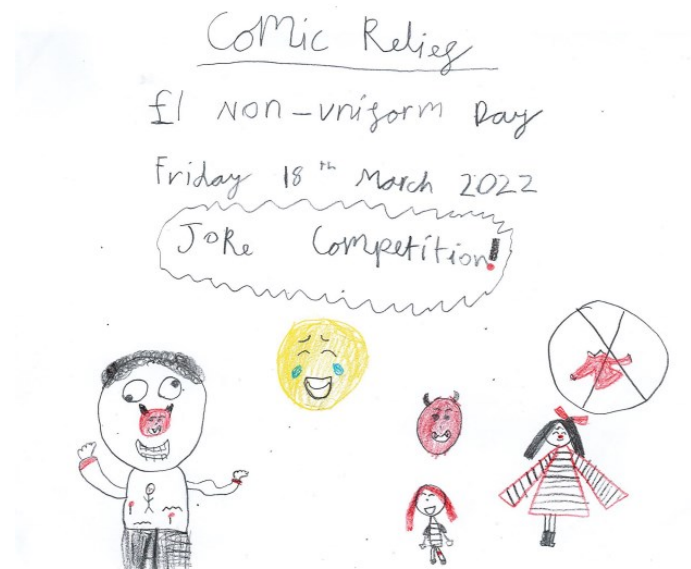 Comic Relief
£1 Non-uniform Day
Friday 18th March 2022
JoKe Competition!